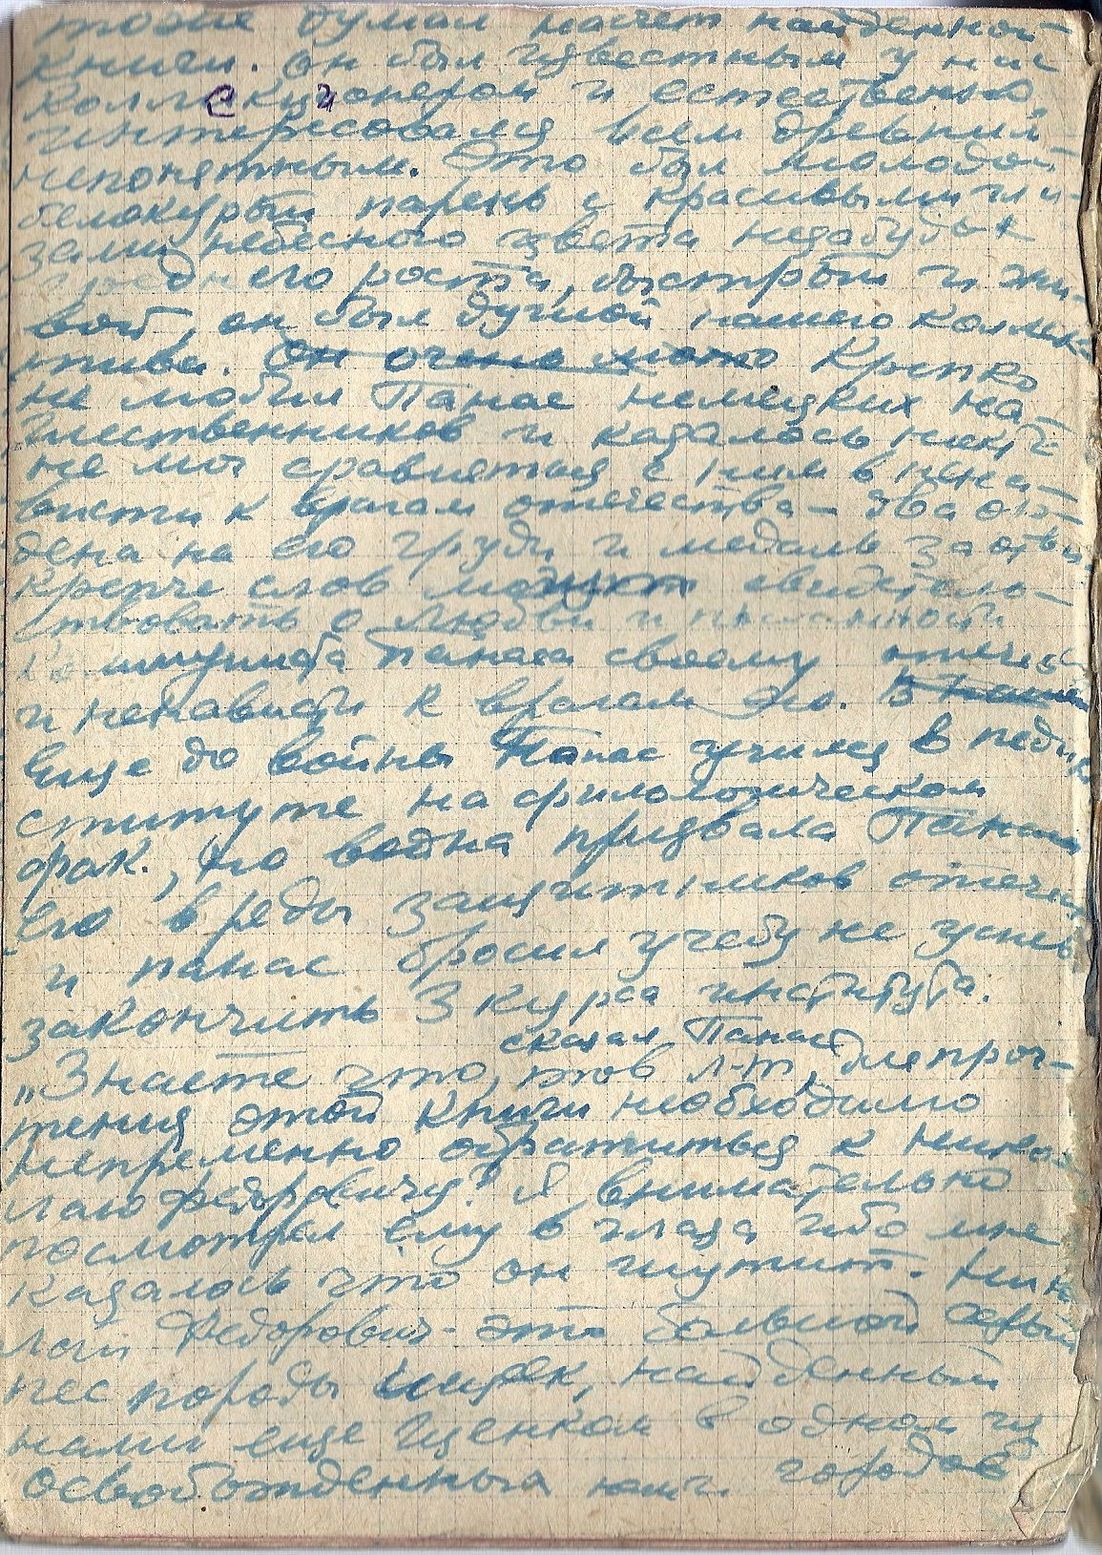 тоже думал насчет найденной
книги. он был известным у нас
коллекционером и естественно
интересовался всем древним
непонятным. Это был молодой
белокурый парень с красивыми гла-
зами небесного цвета незабудык
среднего роста, быстрый и жи-
вой, он был душой нашего коллек
тива. Он очень Крепко
не любил Панас немецких на-
шественников и казалось никто
не мог сравниться с ним в нена-
висти к врагам отечества – два ор-
дена на его груди и медаль за отва
крепче слов могут свидетель-
ствовать о любви и
Панаса своему отечес
и ненависти к врагам его. В
еще до войны Панас учился в педин
ституте на филологическом
фак., но война призвала Панаса
его в ряды защитников отечес
и панас бросил учебу не успев
закончить 3 курса института.
сказал Панас
„Знаете что, тов л-т, для проч-
тения этой книги необходимо
непременно обратиться к Нико-
лаю Федоровичу". Я внимательно
посмотрел ему в глаза ибо мне
казалось что он шутит. Нико
лай Федорович – это большой серый
пес породы ищеек, найденный
нами еще щенком в одном из
освобожденных нами городов